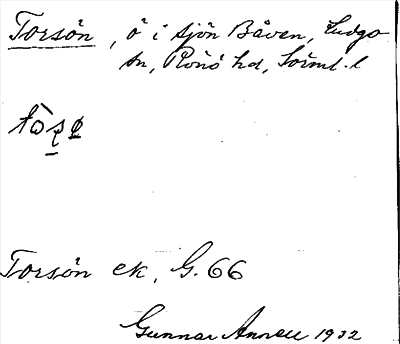 Torsön, ö i sjön Båven, Ludgo
sn, Rönö hd, Södml. l
Torsön ek. G. 66
Gunnar Annell 1932